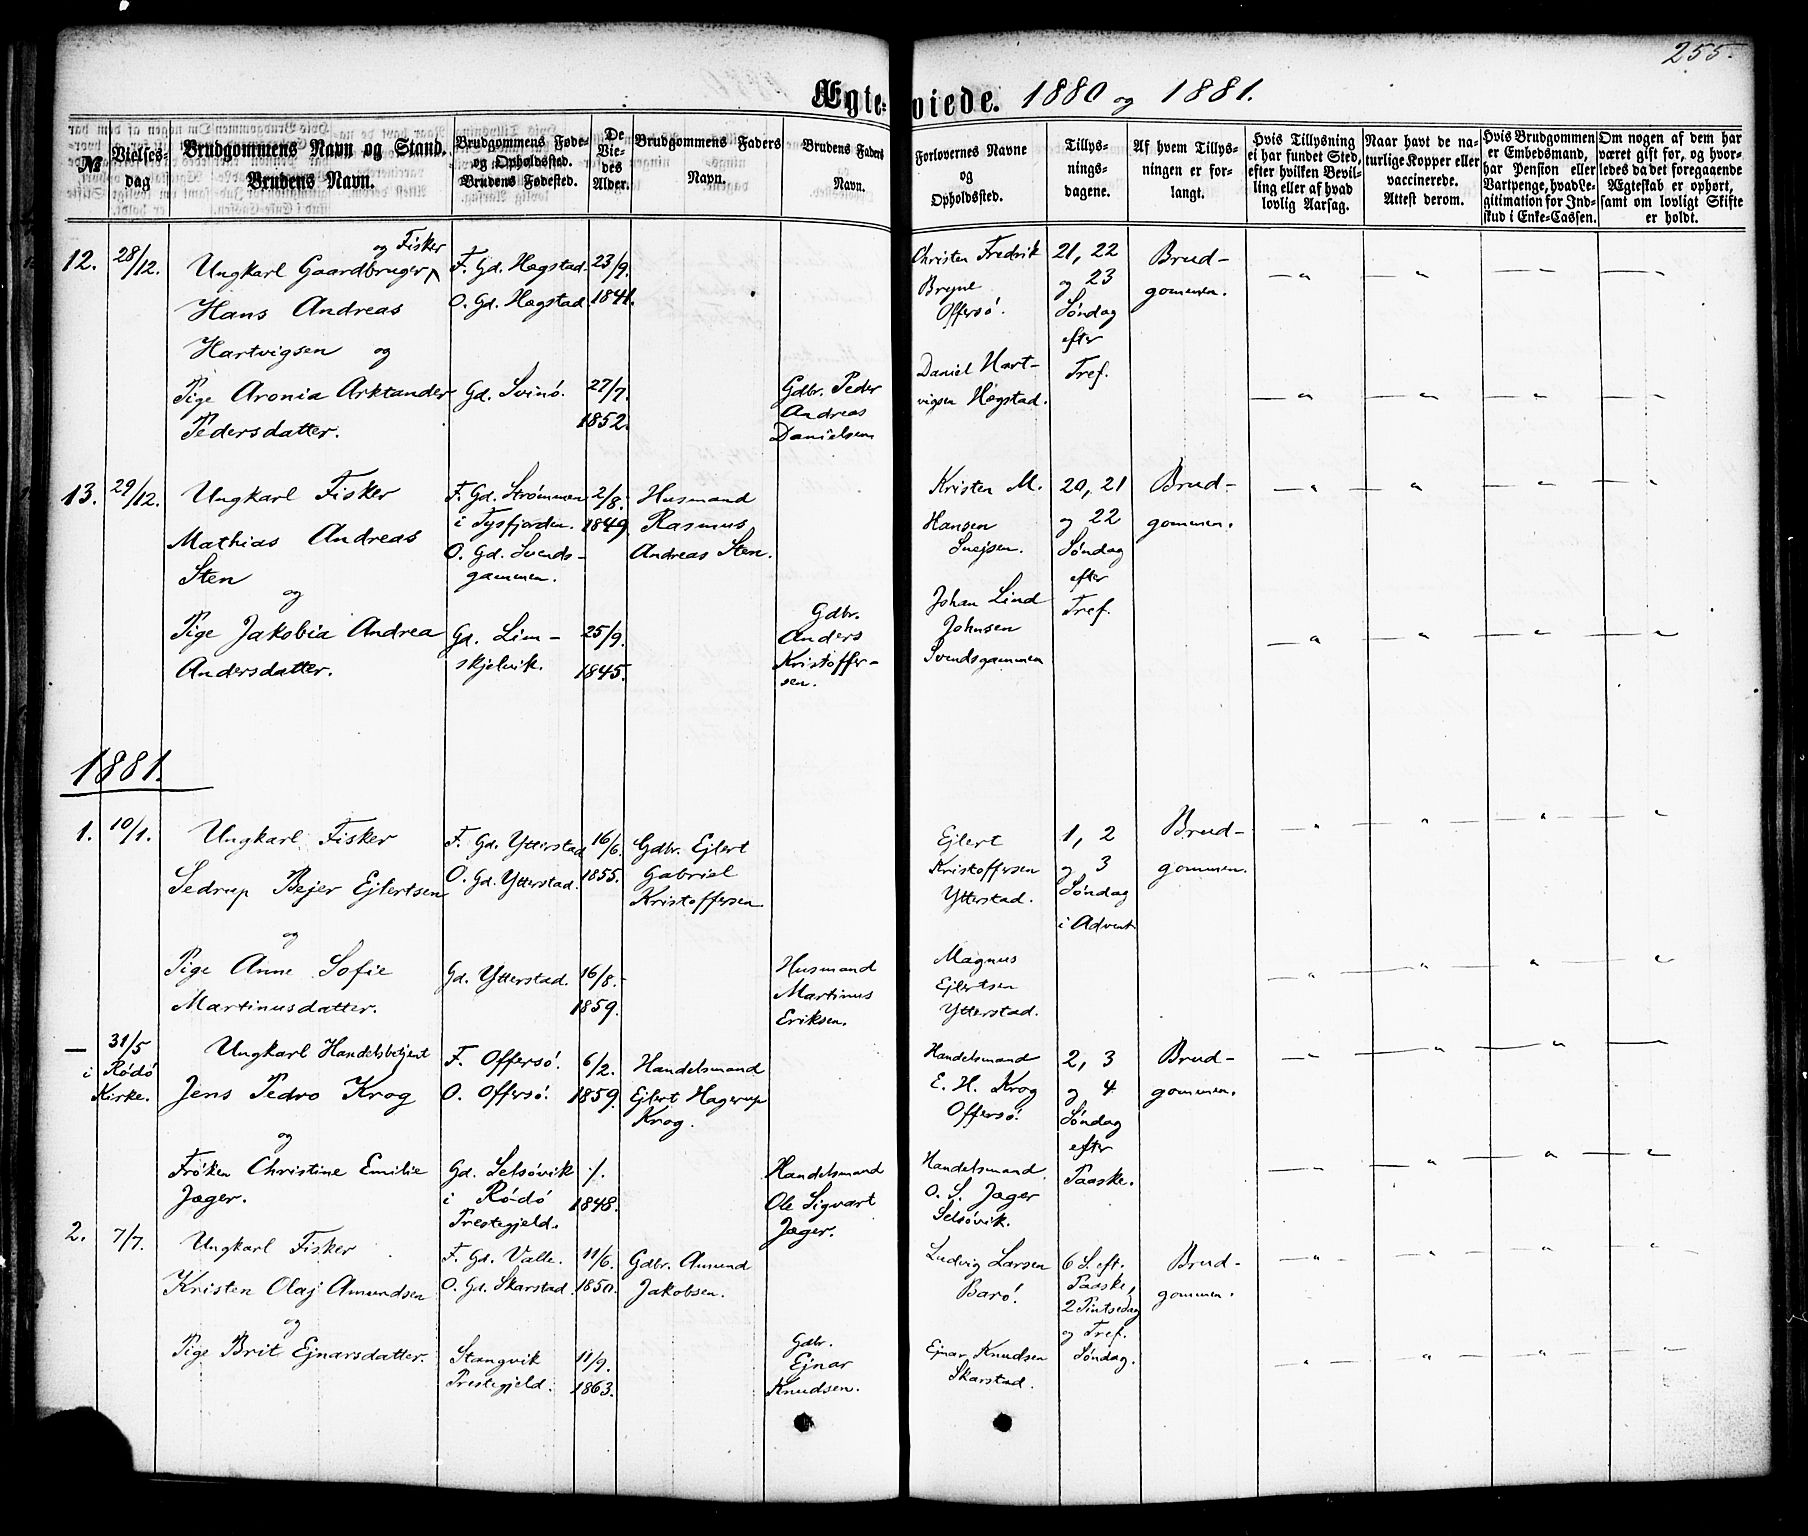 255.
Ægteviede. 1880 og 1881.
№
Vielses-
dag
Brudgommens Navn og Stand.
Brudens Navn.
Brudgommens Føde-
og Opholdssted.
Brudens Fødested.
De
Vie-
des
Alder.
Brudgommens Faders
Navn.
Brudens Faders
Navn.
Forlovernes Navne
og
Opholdssted.
Tillys-
nings-
dagene.
Af hvem Tillys-
ningen er for-
langt.
Hvis Tillysning
ei har fundet Sted,
efter hvilken Bevil-
ling eller af hvad
lovlig Aarsag.
Naar havt de na-
turlige Kopper eller
vaccinerede.
Attest derom.
Hvis Brudgommen
er Embedsmand,
har Pension eller
Vartpenge, hvad Le-
gitimation for Ind-
skud i Enke-Cassen.
Om nogen af dem har
været gift før, og hvor-
ledes da det foregaaende
Ægteskab er ophørt,
samt om lovligt Skifte
er holdt.
12.
28/12.
og Fisker
Ungkarl Gaardbruger
Hans Andreas
Hartvigsen og
Pige Aronia Arktander
Pedersdatter.
F. Gd. Hægstad.
O. Gd. Hægstad.
Gd. Svinö.
23/9.
1841.
27/7.
1852.
Gdbr. Peder
Andreas
Danielsen
Christen Fredrik
Bryne
Offersö.
Daniel Hart-
vigsen Hægstad.
21, 22
og 23
Søndag
efter
Tref.
Brud-
gommen.
13.
29/12.
Ungkarl Fisker
Mathias Andreas
Sten
og
Pige Jakobia Andrea
Andersdatter.
F. Gd. Strömmen
i Tysfjorden.
O. Gd. Svends-
gammen.
Gd. Lim-
skjelvik.
2/8.
1849
25/9.
1845.
Husmand
Rasmus
Andreas Sten.
Gdbr.
Anders
Kristoffer-
sen.
Kristen M.
Hansen
Snejsen.
Johan Lind
Johnsen
Svendsgammen
20, 21
og 22
Søndag
efter
Tref.
Brud-
gommen.
1881.
1.
10/1.
Ungkarl Fisker
Sedrup Bejer Ejlertsen
og
Pige Anne Sofie
Martinusdatter.
F. Gd. Ytterstad
O. Gd. Ytterstad.
Gd. Ytterstad.
16/6.
1855.
16/8.
1859.
Gdbr. Ejlert
Gabriel
Kristoffersen
Husmand
Martinus
Eriksen.
Ejlert
Kristoffersen
Ytterstad.
Magnus
Ejlertsen
Ytterstad.
1, 2
og 3
Søndag
i Advent
Brud-
gommen.
—
31/5
i Rödö
Kirke.
Ungkarl Handelsbetjent
Jens Pedro Krog
og
Frøken Christine Emilie
Jæger.
F. Offersö.
O. Offersö.
Gd. Selsövik
i Rödö
Prestegjeld.
6/2.
1859.
/.
1848.
Handelsmand
Ejlert Hagerup
Krog.
Handelsmand
Ole Sigvart
Jæger.
Handelsmand
E. H. Krog
Offersö.
Handelsmand
O. S. Jæger
Selsövik.
2, 3
og 4
Søndag
efter
Paaske.
Brud-
gommen.
2.
7/7.
Ungkarl Fisker
Kristen Olaj Amundsen
og
Pige Brit Ejnarsdatter.
F. Gd. Valle.
O. Gd. Skarstad.
Stangvik
Prestegjeld.
11/6.
1850.
11/9.
1863.
Gdbr. Amund
Jakobsen.
Gdbr.
Ejnar
Knudsen.
Ludvig Larsen
Barö.
Ejnar Knudsen
Skarstad.
6 S. eft.
Paaske,
2 Pintsedag
og Tref.
Søndag.
Brud-
gommen.